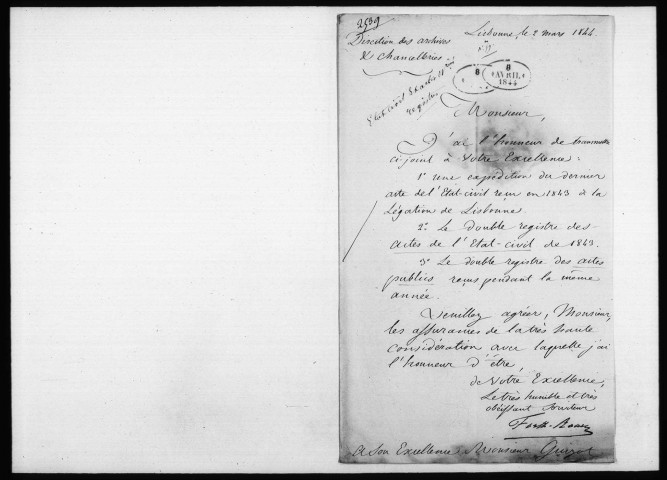 2559
Direction des archives
& Chancelleries
Lisbonne, le 2 mars 1844
8
8
AVRIL
1844
Etat civil
registre
Monsieur,
J'ai l'honneur de transmettre
ci-joint à Votre Excellence:
1° une expédition du dernier
acte de l'Etat-civil reçu en 1843 à la
Légation de Lisbonne.
2° Le double registre des
actes de l'Etat-civil de 1843.
3° Le double registre des actes
publics reçus pendant la même
année.
Veuillez agréer, Monsieur,
les assurances de la très haute
considération avec laquelle j'ai
l'honneur d'être,
de Votre Excellence,
Le très humble et très
obéissant serviteur
Forth-Rouen
A Son Excellence Monsieur Guizot